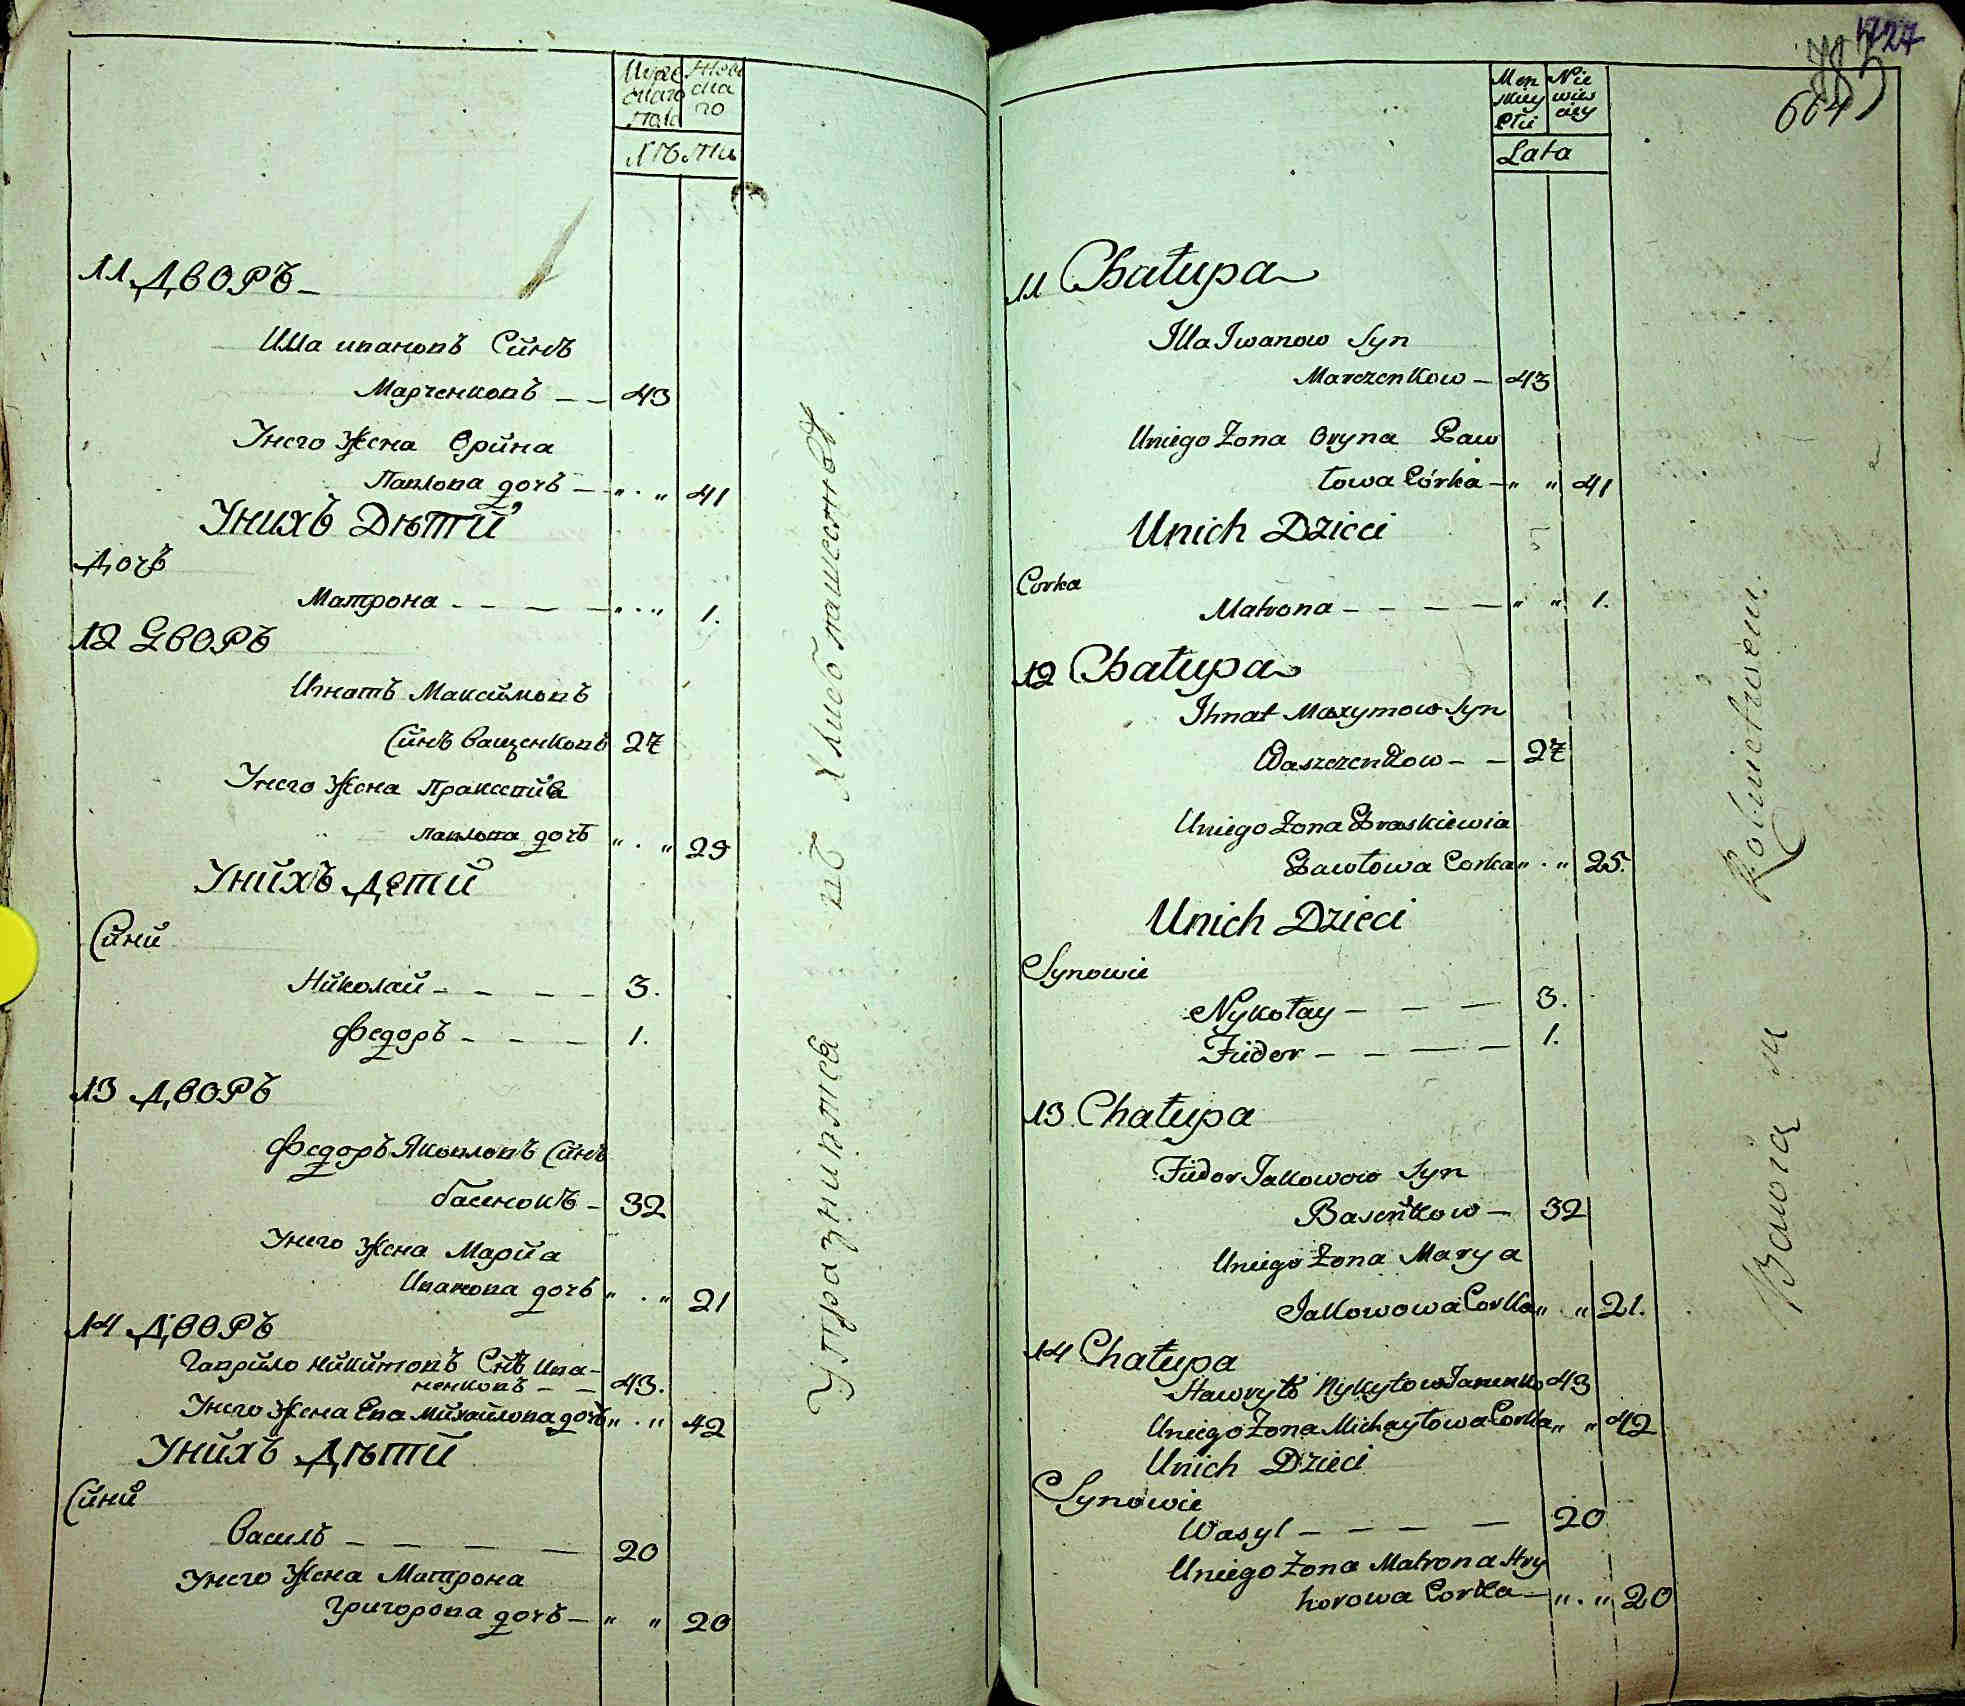 Муже
скаго
Пола
Женс
ска
го
Лѣты
11 Дворъ
Илла ивановъ Синъ
Марченковъ — — 43
Унего Жена Орина
Павлова дочъ — „ . „ 41
Унихъ Дѣти
Дочъ
Матрона — — — — „ . „ 1.
12 Дворъ
Игнатъ Максимовъ
Синъ Ващенковъ 27
Унего Жена Праксевия
павлова дочъ „ . „ 25
Унихъ дети
Сини
Николай — — — — 3.
Федоръ — — — 1.
13 Дворъ
Федоръ Яковловъ Синъ
басенокъ — 32
Унего Жена Мария
Иванова дочъ „ . „ 21
14 Дворъ
Гаврило никитовъ Снъ Ива-
ненковъ — — 43.
Унего Жена Ева михайлова дочъ „ . „ 42
Унихъ Дѣти
Сини
Василъ — — — — 20
Унего Жена Матрона
григорова дочъ — „ „ 20
Упразнивтся
727
664
Męz
skiey
Płci
Nie
wies
ciey
Lata
11 Chałupa
Illa Iwanow Syn
Marczenkow — 43
Uniego Zona Oryna Paw
łowa Córka — „ „ 41
Unich Dzieci
Corka
Matrona — — — — „ „ 1.
12 Chałupa
Ihnat Maxymow Syn
Waszczenkow — — 27
Uniego Zona Praskiewia
Pawłowa Corka „ . „ 25.
Unich Dzieci
Synowie
Nykołay — — — 3.
Fiidor — — — — 1.
13 Chałupa
Fiidor Jakowow Syn
Baseńkow — 32
Uniego Zona Marya
Jakowowa Corka „ „ 21.
14 Chałupa
Hawryło Nykytow Iwanenko 43
Uniego Zona Michayłowa Corka „ „ 42
Unich Dzieci
Synowie
Wasyl — — — — 20
Uniego Zona Matrona Hry
horowa Corka — „ . „ 20
Bawią się